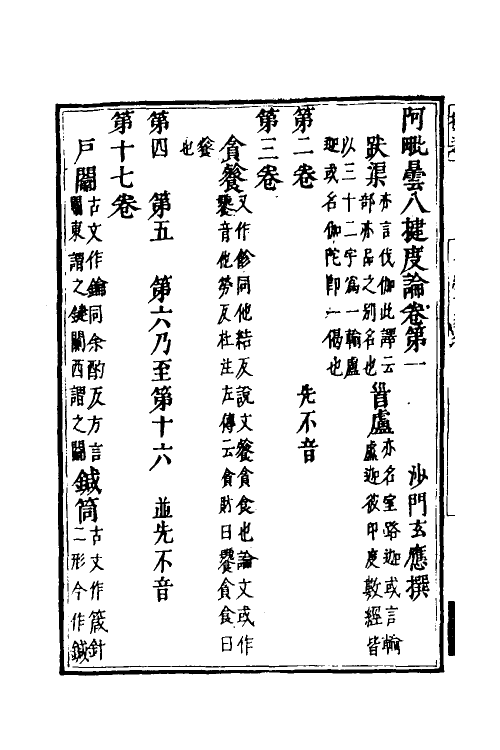 阿毗曇八揵度論卷第一　沙門玄應撰
跋渠亦言伐伽此譯云部亦品之別名也首盧亦名室路迦或言輸盧迦彼印度數經皆
以三十二字為一輸盧迦或名伽陀即一偈也
第二卷　先不音
第三卷
貪餮又作飻同他結反說文餮貪食也論文或作饕音他勞反杜注左傳云貪財曰饕貪食曰
餮也
第四　第五　第六乃至第十六　並先不音
第十七卷
戶古文作鑰同余酌反方言關東謂之鍵關西謂之鍼筒古文作箴針二形今作鍼